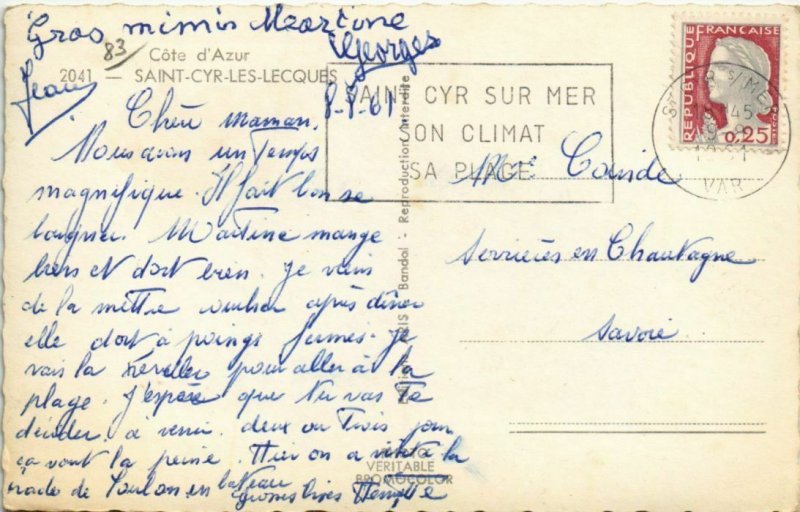 Gros mimis Martine
Georges
Jean
83
Côte d'Azur
2041 — SAINT-CYR-LES-LECQUES
8-8-61
Chère maman.
Nous avons un temps
magnifique. Il fait bon se
baigner. Martine mange
bien et dort bien. Je viens
de la mettre coucher après dîner
elle dort à poings fermés. Je
vais la réveiller pour aller à la
plage. J'espère que tu vas te
décider à venir. deux ou trois jours
ça vaut la peine. Hier on a visité la
rade de Toulon en bateau
Grosses bises
Bandol - Reproduction interdite
VÉRITABLE
BROMOCOLOR
SAINT CYR SUR MER
SON CLIMAT
SA PLAGE
REPUBLIQUE FRANÇAISE
0,25
S/MER
VAR
Mme
Serrières en Chautagne
Savoie